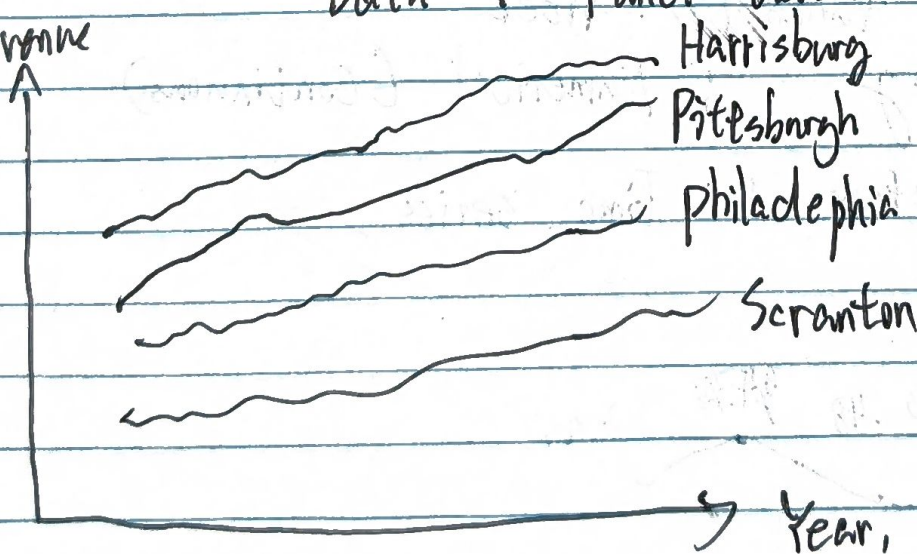 Harrisburg
Pittsburgh
philadephia
Scranton
Year,